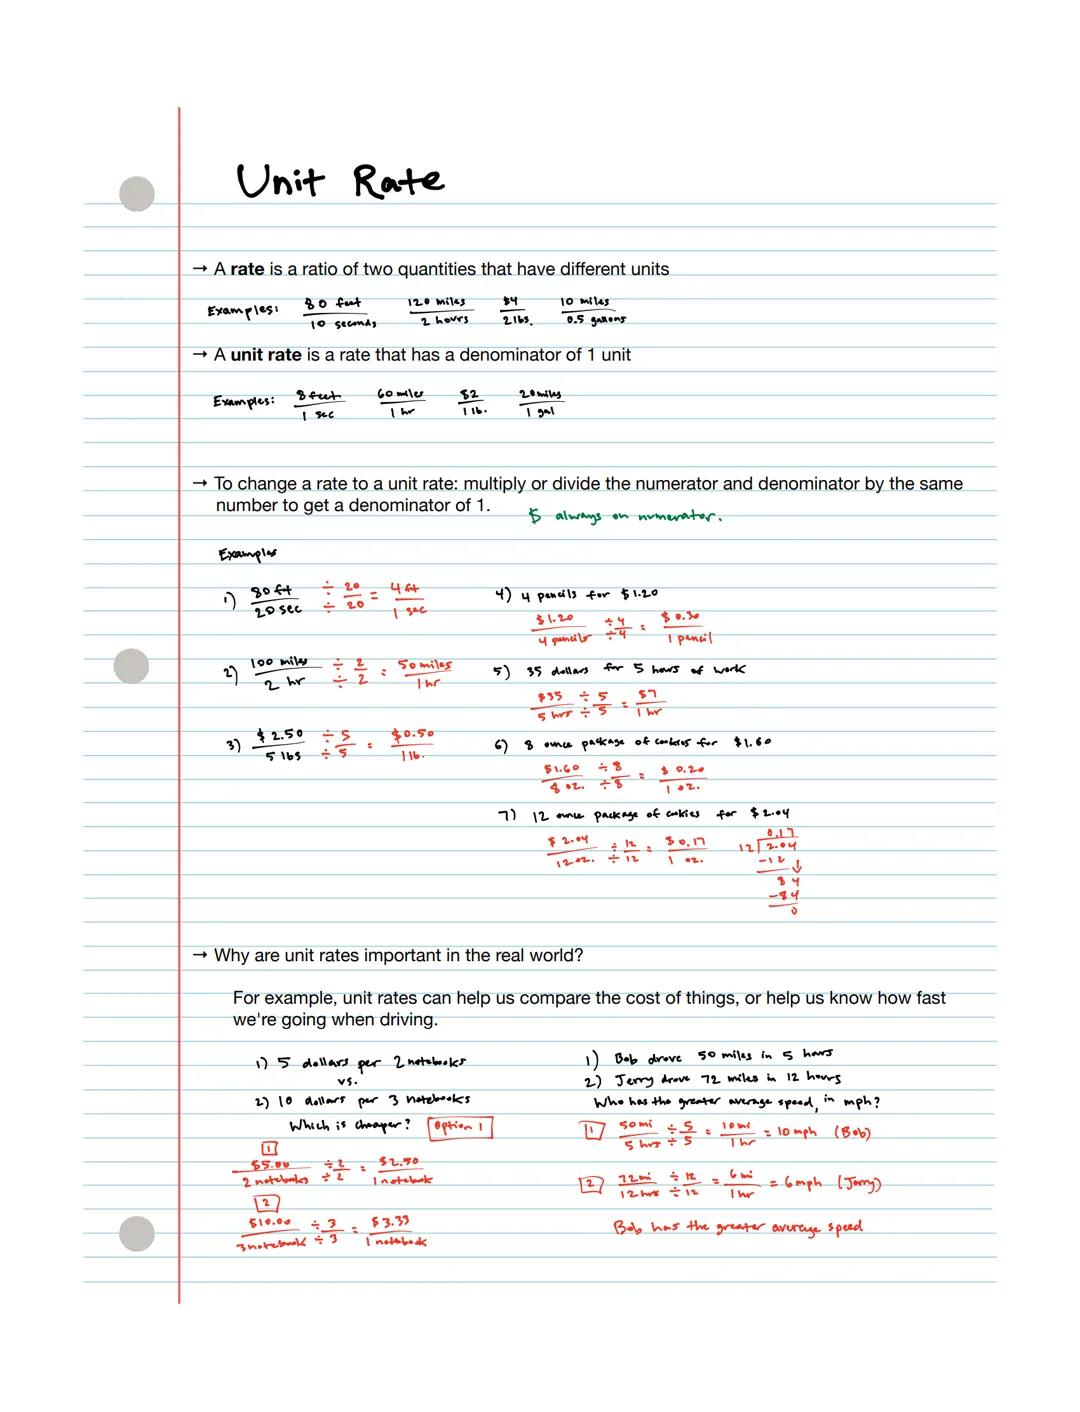 Unit Rate
→ A rate is a ratio of two quantities that have different units
Examples: 80 feet / 10 seconds 120 miles / 2 hours $4 / 2 lbs. 10 miles / 0.5 gallons
→ A unit rate is a rate that has a denominator of 1 unit
Examples: 8 feet / 1 sec 60 miles / 1 hr $2 / 1 lb. 20 miles / 1 gal
→ To change a rate to a unit rate: multiply or divide the numerator and denominator by the same
number to get a denominator of 1.
$ always on numerator.
Examples
1) 80 ft / 20 sec ÷ 20 / ÷ 20 = 4 ft / 1 sec
2) 100 miles / 2 hr ÷ 2 / ÷ 2 = 50 miles / 1 hr
3) $2.50 / 5 lbs ÷ 5 / ÷ 5 = $0.50 / 1 lb.
4) 4 pencils for $1.20
$1.20 / 4 pencils ÷4 / ÷4 = $0.30 / 1 pencil
5) 35 dollars for 5 hours of work
$35 / 5 hrs ÷ 5 / ÷ 5 = $7 / 1 hr
6) 8 ounce package of cookies for $1.60
$1.60 / 8 oz. ÷8 / ÷8 = $0.20 / 1 oz.
7) 12 ounce package of cookies for $2.04
$2.04 / 12 oz. ÷ 12 / ÷ 12 = $0.17 / 1 oz.
0.17
12 2.04
-12 ↓
84
-84
0
→ Why are unit rates important in the real world?
For example, unit rates can help us compare the cost of things, or help us know how fast
we're going when driving.
1) 5 dollars per 2 notebooks
vs.
2) 10 dollars per 3 notebooks
Which is cheaper? Option 1
1
$5.00 / 2 notebooks ÷2 / ÷2 = $2.50 / 1 notebook
2
$10.00 / 3 notebook ÷ 3 / ÷ 3 = $3.33 / 1 notebook
1) Bob drove 50 miles in 5 hours
2) Jerry drove 72 miles in 12 hours
Who has the greater average speed, in mph?
1 50 mi / 5 hrs ÷ 5 / ÷ 5 = 10 mi / 1 hr = 10 mph (Bob)
2 72 mi / 12 hrs ÷ 12 / ÷ 12 = 6 mi / 1 hr = 6 mph (Jerry)
Bob has the greater average speed